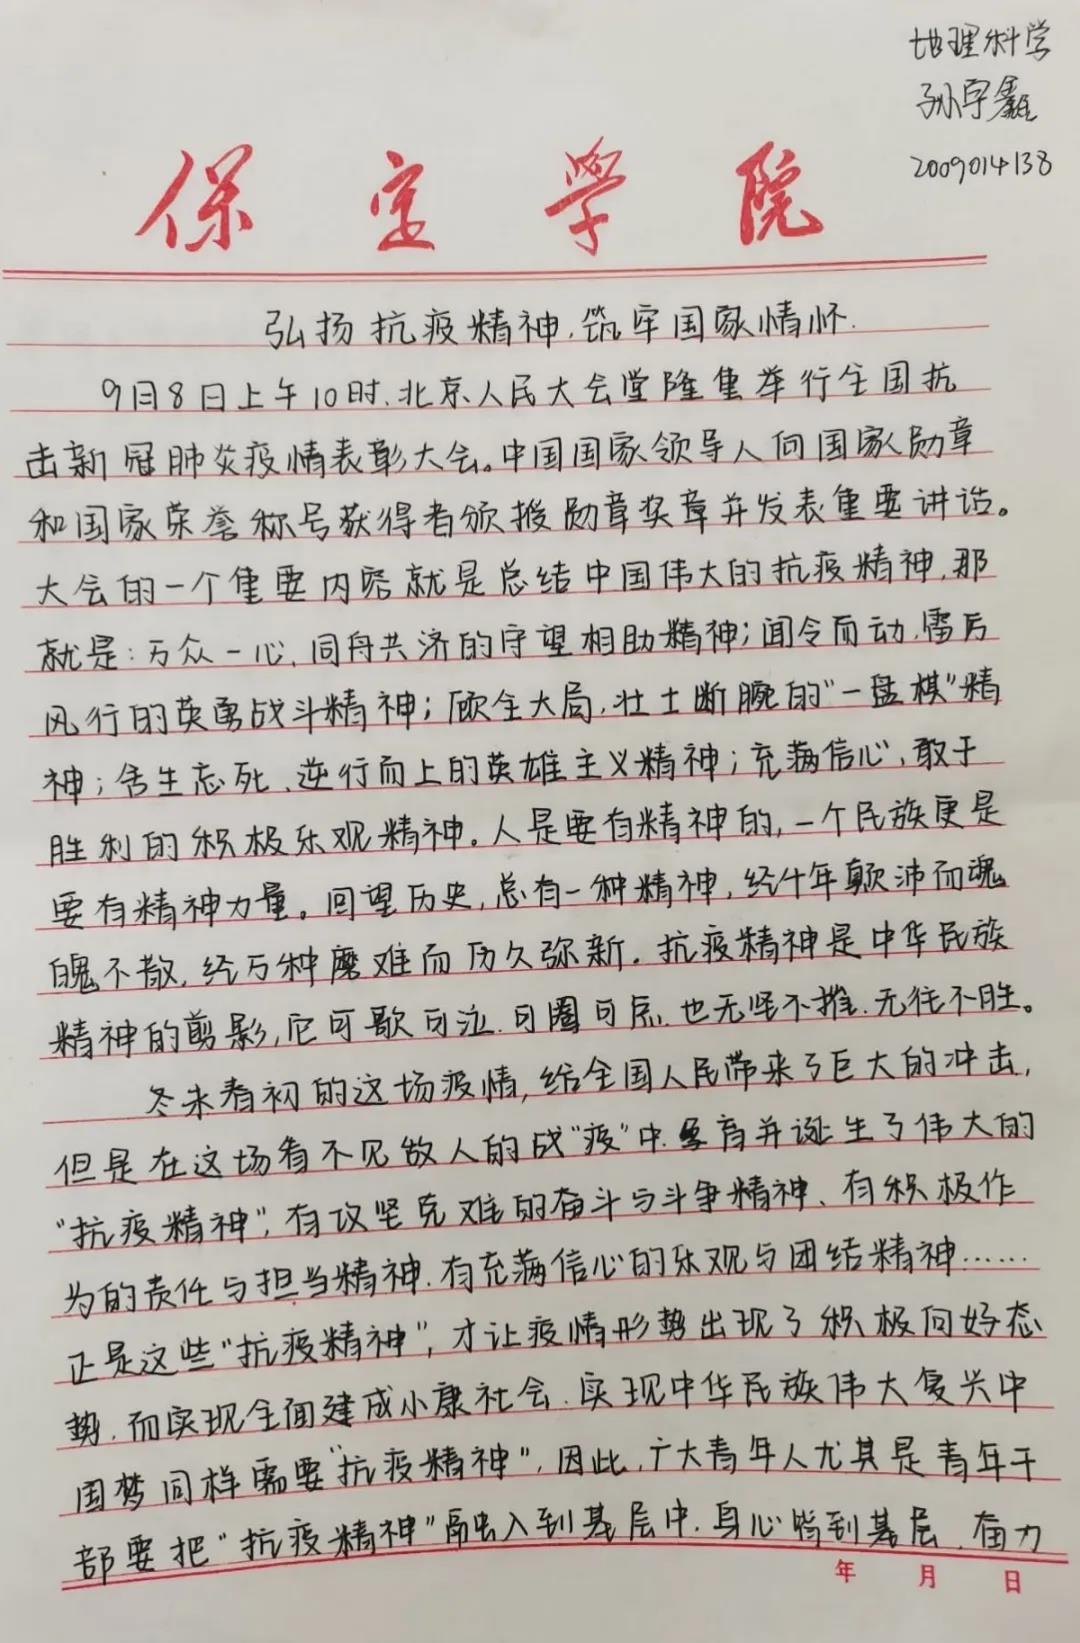 地理科学
孙宇鑫
2009014138
保定学院
弘扬抗疫精神,筑牢国家情怀.
9月8日上午10时,北京人民大会堂隆重举行全国抗
击新冠肺炎疫情表彰大会。中国国家领导人向国家勋章
和国家荣誉称号获得者颁授勋章奖章并发表重要讲话。
大会的一个重要内容就是总结中国伟大的抗疫精神,那
就是:万众一心、同舟共济的守望相助精神;闻令而动、雷厉
风行的英勇战斗精神;顾全大局,壮士断腕的"一盘棋"精
神;舍生忘死、逆行而上的英雄主义精神;充满信心、敢于
胜利的积极乐观精神。人是要有精神的,一个民族更是
要有精神力量。回望历史,总有一种精神,经千年颠沛而魂
魄不散,经万种磨难而历久弥新。抗疫精神是中华民族
精神的剪影,它可歌可泣、可圈可点、也无坚不摧、无往不胜。
冬末春初的这场疫情,给全国人民带来了巨大的冲击,
但是在这场看不见敌人的战"疫"中,孕育并诞生了伟大的
"抗疫精神",有攻坚克难的奋斗与斗争精神、有积极作
为的责任与担当精神、有充满信心的乐观与团结精神……
正是这些"抗疫精神",才让疫情形势出现了积极向好态
势,而实现全面建成小康社会、实现中华民族伟大复兴中
国梦同样需要"抗疫精神",因此,广大青年人尤其是青年干
部要把"抗疫精神"融入到基层中,身心皆到基层,奋力
年 月 日